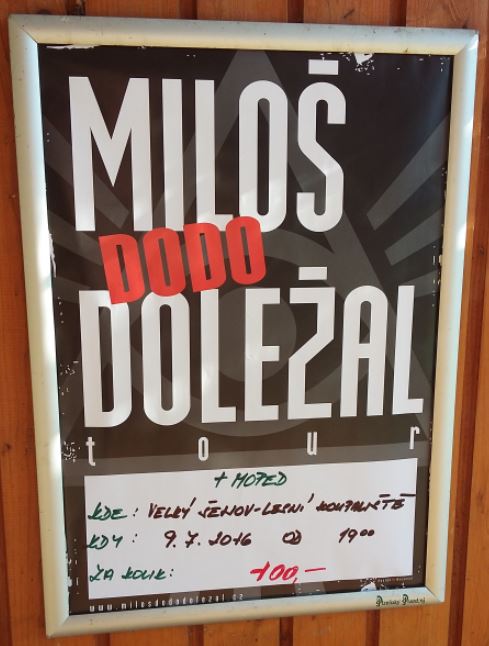 MILOŠ
DODO
DOLEŽAL
tour
+ MOPED
KDE: VELKÝ ŠENOV-LESNÍ KOUPALIŠTĚ
KDY: 9.7.2016 OD 19⁰⁰
ZA KOLIK: 100,-
www.milosdodadolezal.cz